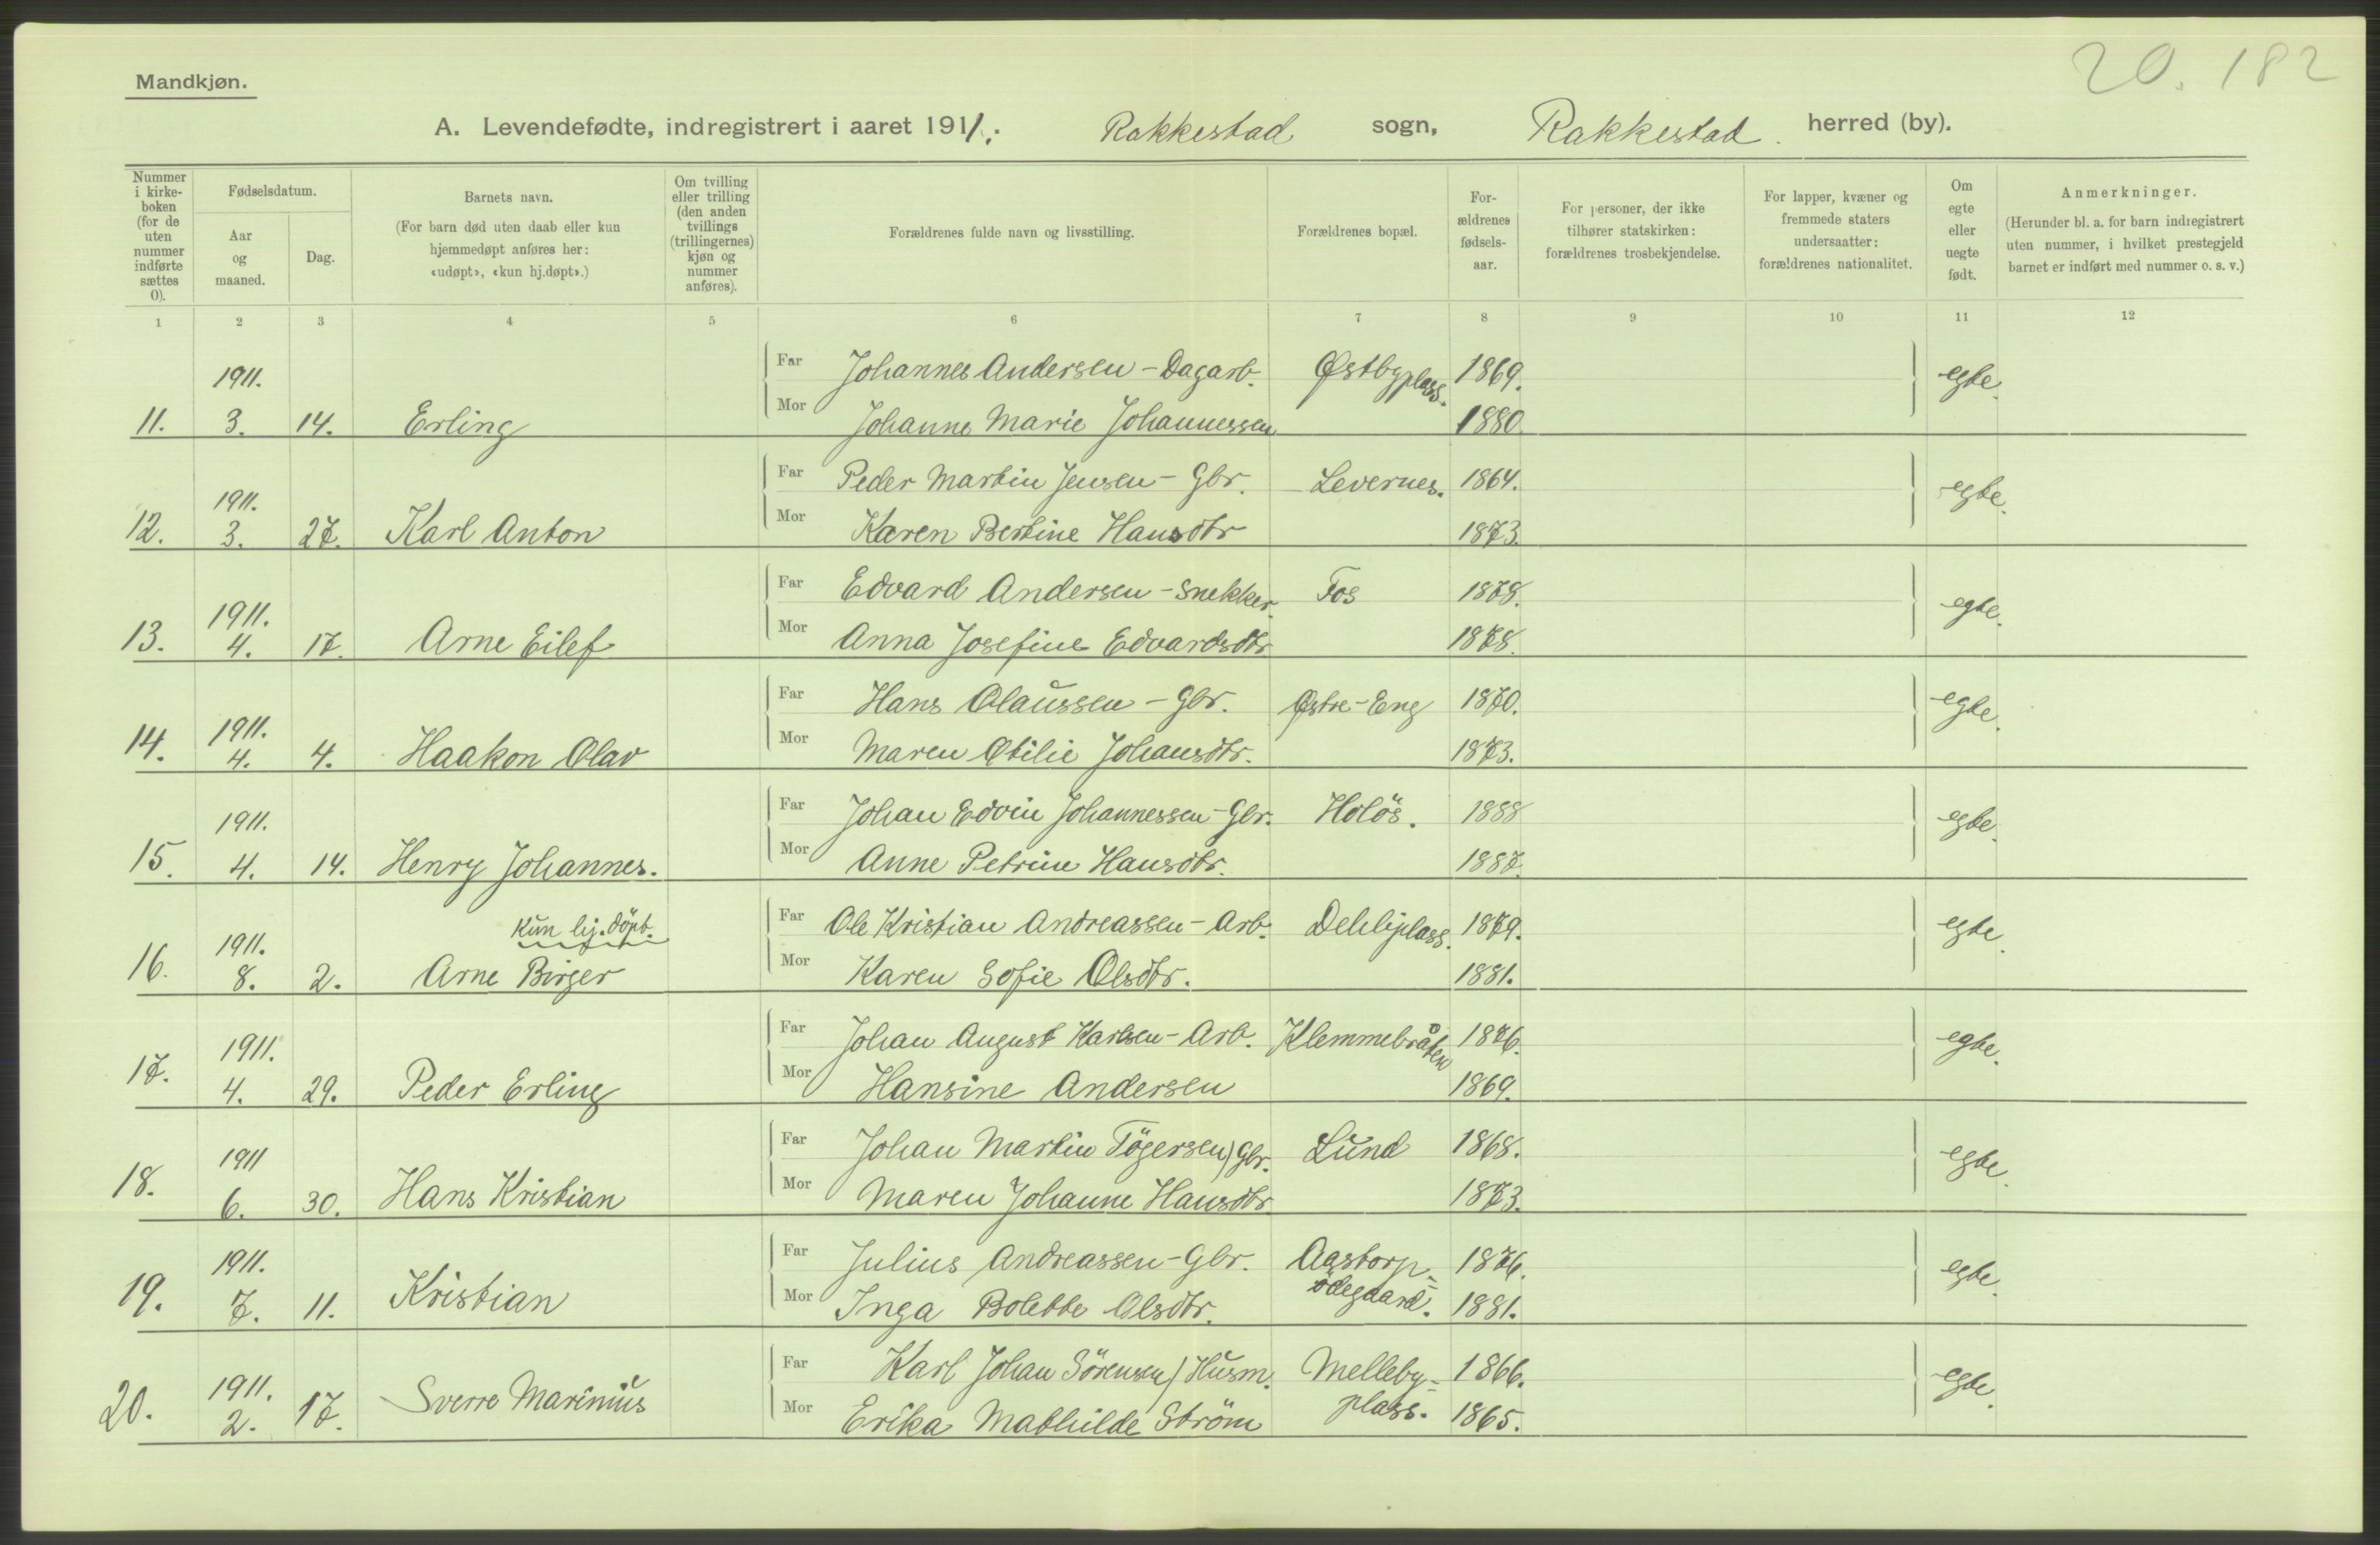 20. 182
Mandkjøn.
A. Levendefødte, indregistrert i aaret 1911. Rakkestad sogn, Rakkestad. herred (by).
Nummer i kirke-boken (for de uten nummer indførte sættes 0).
Fødselsdatum.
Aar og maaned.
Dag.
Barnets navn.
(For barn død uten daab eller kun hjemmedøpt anføres her: «udøpt», «kun hj.døpt».)
Om tvilling eller trilling (den anden tvillings (trillingernes) kjøn og nummer anføres).
Forældrenes fulde navn og livsstilling.
Forældrenes bopæl.
For-ældrenes fødsels-aar.
For personer, der ikke tilhører statskirken: forældrenes trosbekjendelse.
For lapper, kvæner og fremmede staters undersaatter: forældrenes nationalitet.
Om egte eller uegte født.
Anmerkninger.
(Herunder bl. a. for barn indregistrert uten nummer, i hvilket prestegjeld barnet er indført med nummer o. s. v.)
1 2 3 4 5 6 7 8 9 10 11 12
1911. Far Johannes Andersen - Dagarb. Østbyplass. 1869. egte.
11. 3. 14. Erling Mor Johanne Marie Johannessen 1880.
1911. Far Peder Martin Jensen - Gbr. Levernes. 1864. egte.
12. 3. 27. Karl Anton Mor Karen Bertine Hansdtr 1873.
1911. Far Edvard Andersen - Snekker Fos 1878. egte.
13. 4. 17. Arne Eilef Mor Anna Josefine Edvardsdtr 1878.
1911. Far Hans Olaussen - Gbr. Østre-Eng 1870. egte.
14. 4. 4. Haakon Olav Mor Maren Otilie Johansdtr. 1873.
1911. Far Johan Edvin Johannessen - Gbr. Holös. 1888 egte.
15. 4. 14. Henry Johannes. Mor Anne Petrine Hansdtr. 1887.
1911. Kun hj. döpt. Far Ole Kristian Andreassen - Arb. 1879. egte.
16. 8. 2. Arne Birger Mor Karen Sofie Olsdtr. 1881.
1911. Far Johan August Karlsen - Arb. Klemmebråten 1876. egte.
17. 4. 29. Peder Erling Mor Hansine Andersen 1869.
1911 Far Johan Martin Tögersen) Gbr. Lund 1868. egte.
18. 6. 30. Hans Kristian Mor Maren Johanne Hansdtr 1873.
1911. Far Julius Andreassen - Gbr. Aastorp- 1876. egte.
19. 7. 11. Kristian Mor Inga Bolette Olsdtr. ödegaard. 1881.
1911. Far Karl Johan Sörensen) Husm. Melleby- 1866. egte.
20. 2. 17. Sverre Marinius Mor Erika Mathilde Ström plass. 1865.